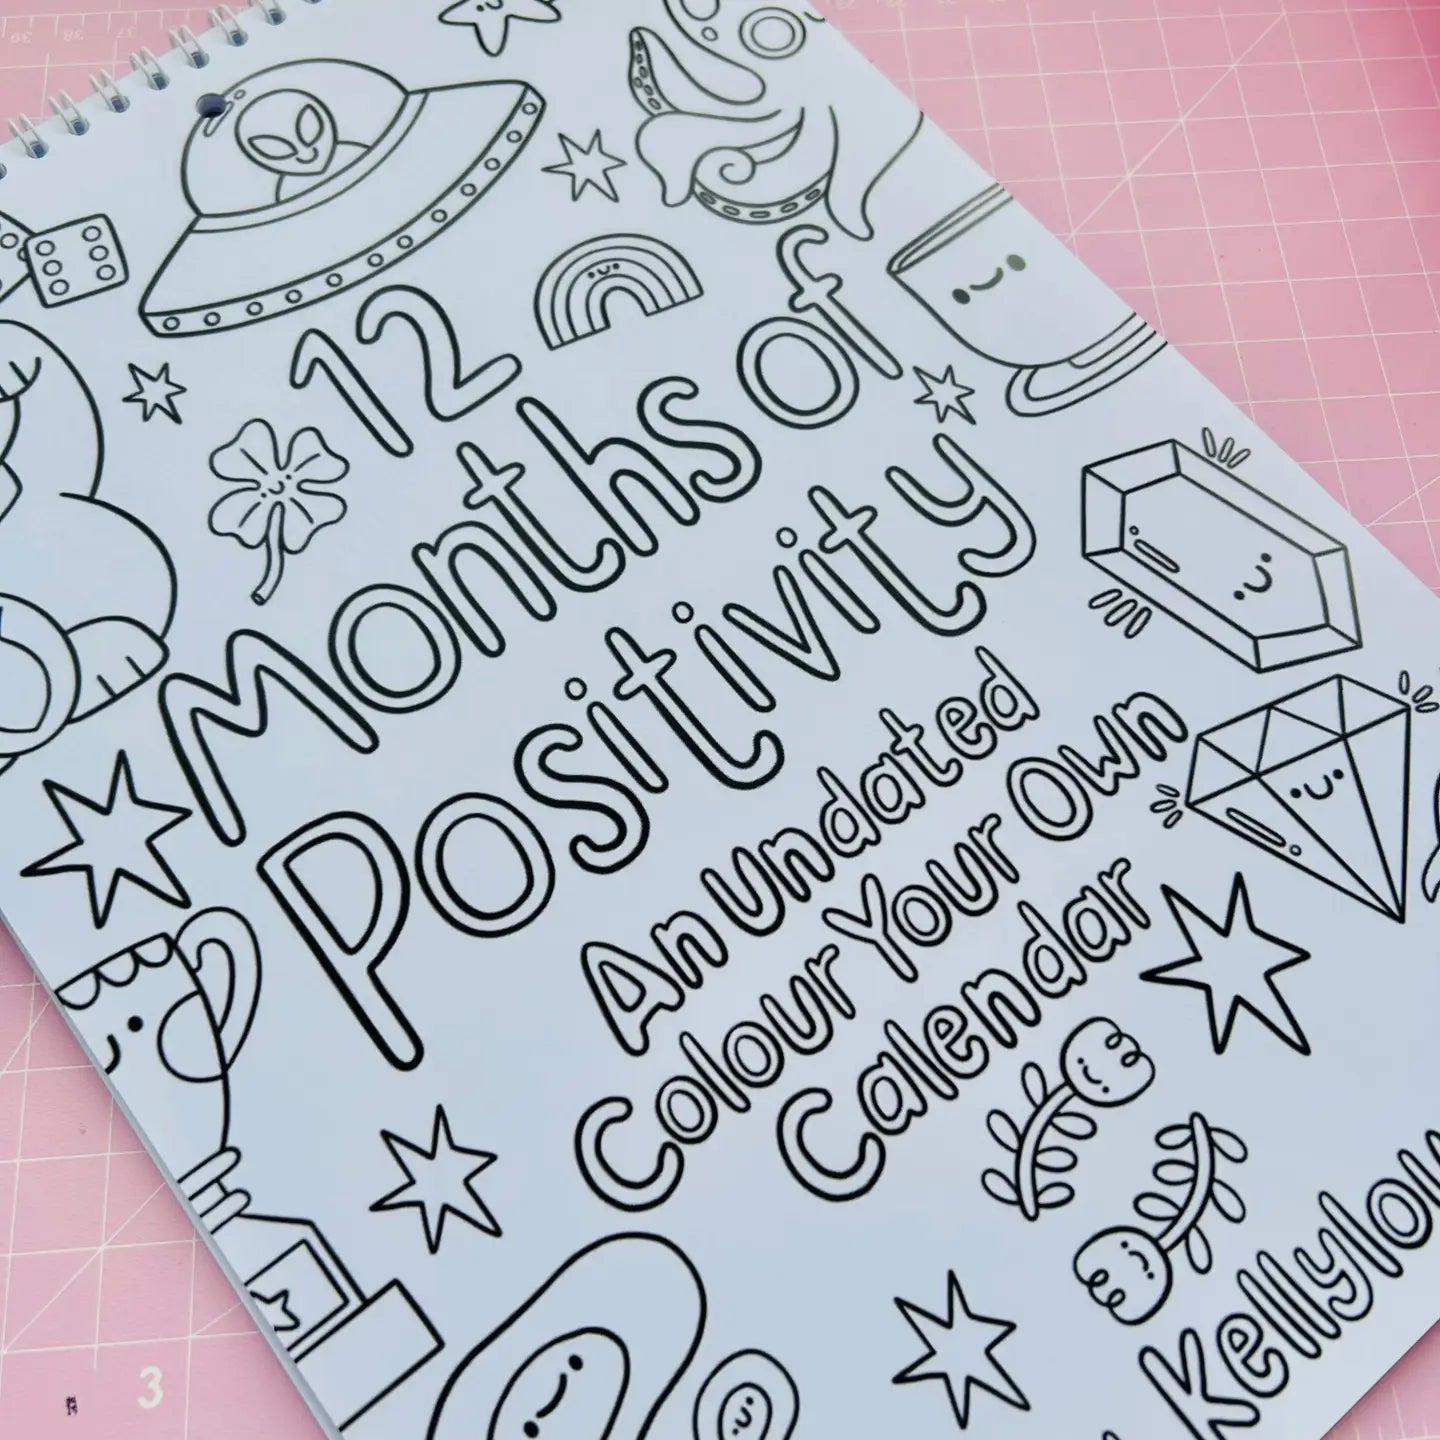 12
Months of
Positivity
An Undated
Colour Your Own
Calendar
3